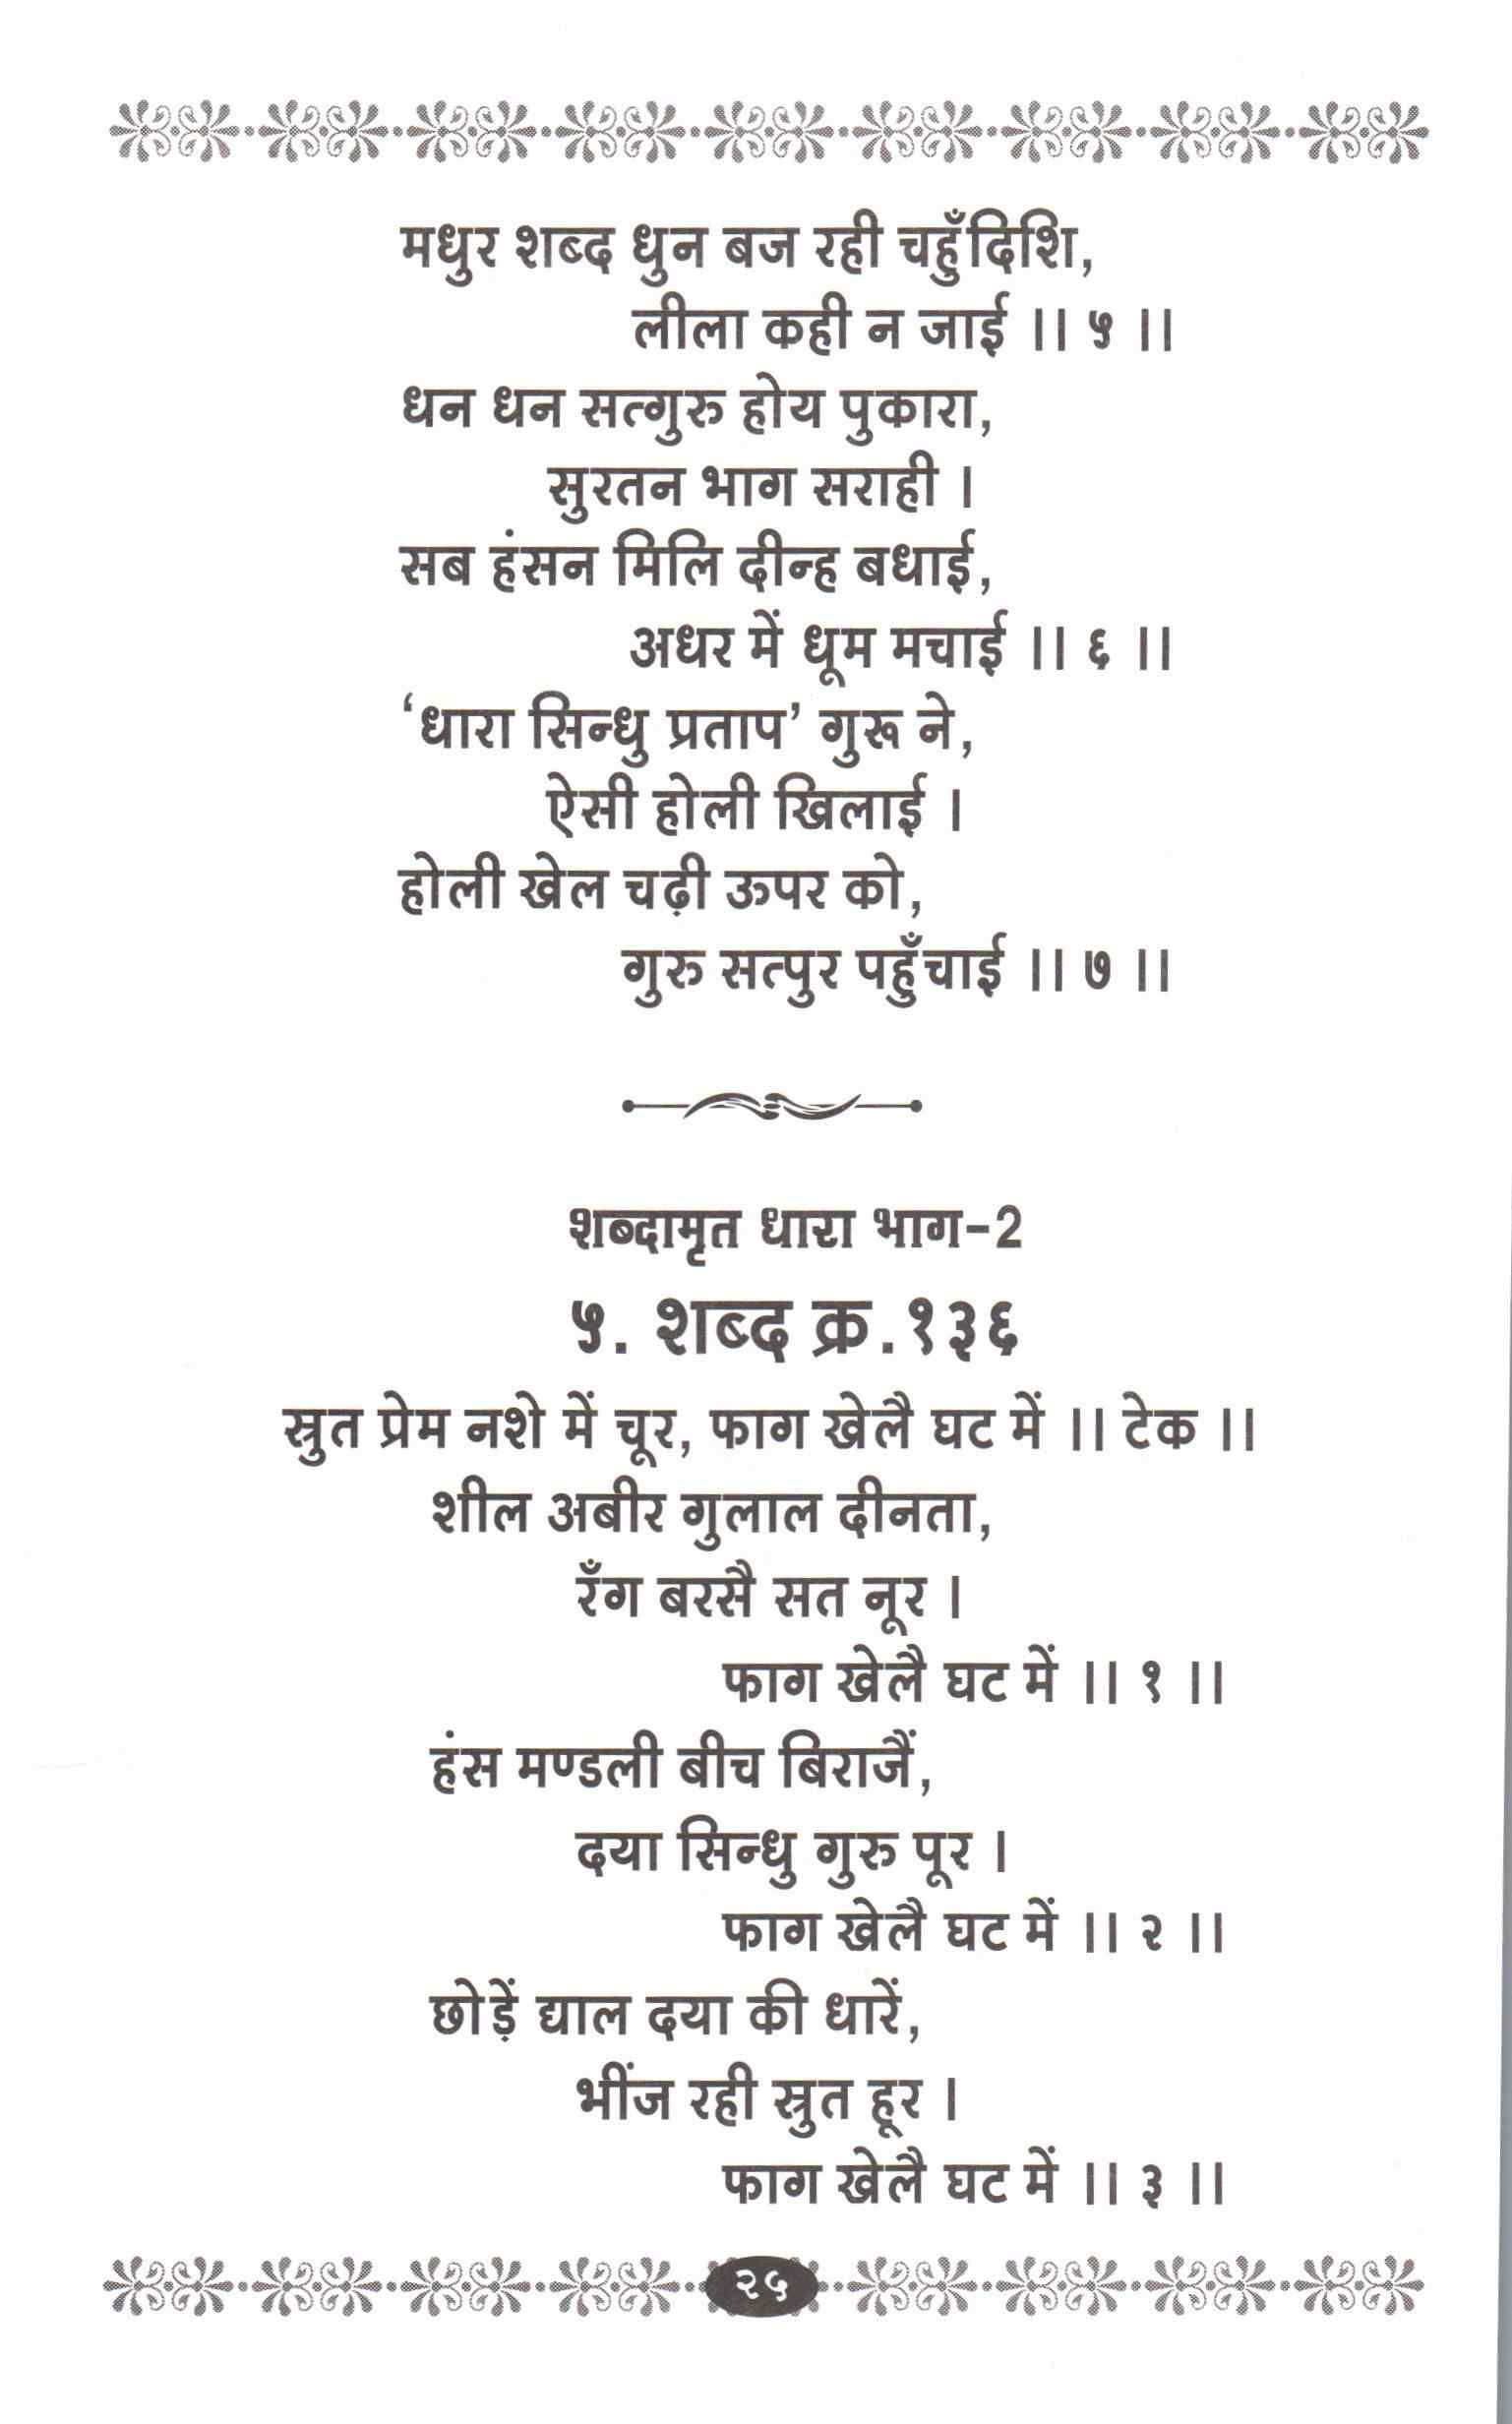 मधुर शब्द धुन बज रही चहुँदिशि,
लीला कही न जाई ।। ५ ।।
धन धन सत्गुरु होय पुकारा,
सुरतन भाग सराही ।
सब हंसन मिलि दीन्ह बधाई,
अधर में धूम मचाई ।। ६ ।।
‘धारा सिन्धु प्रताप’ गुरू ने,
ऐसी होली खिलाई ।
होली खेल चढ़ी ऊपर को,
गुरु सत्पुर पहुँचाई ।। ७ ।।
शब्दामृत धारा भाग-2
५. शब्द क्र.१३६
स्रुत प्रेम नशे में चूर, फाग खेलै घट में ।। टेक ।।
शील अबीर गुलाल दीनता,
रँग बरसै सत नूर ।
फाग खेलै घट में ।। १ ।।
हंस मण्डली बीच बिराजैं,
दया सिन्धु गुरु पूर ।
फाग खेलै घट में ।। २ ।।
छोड़ें द्याल दया की धारें,
भींज रही स्रुत हूर ।
फाग खेलै घट में ।। ३ ।।
२५